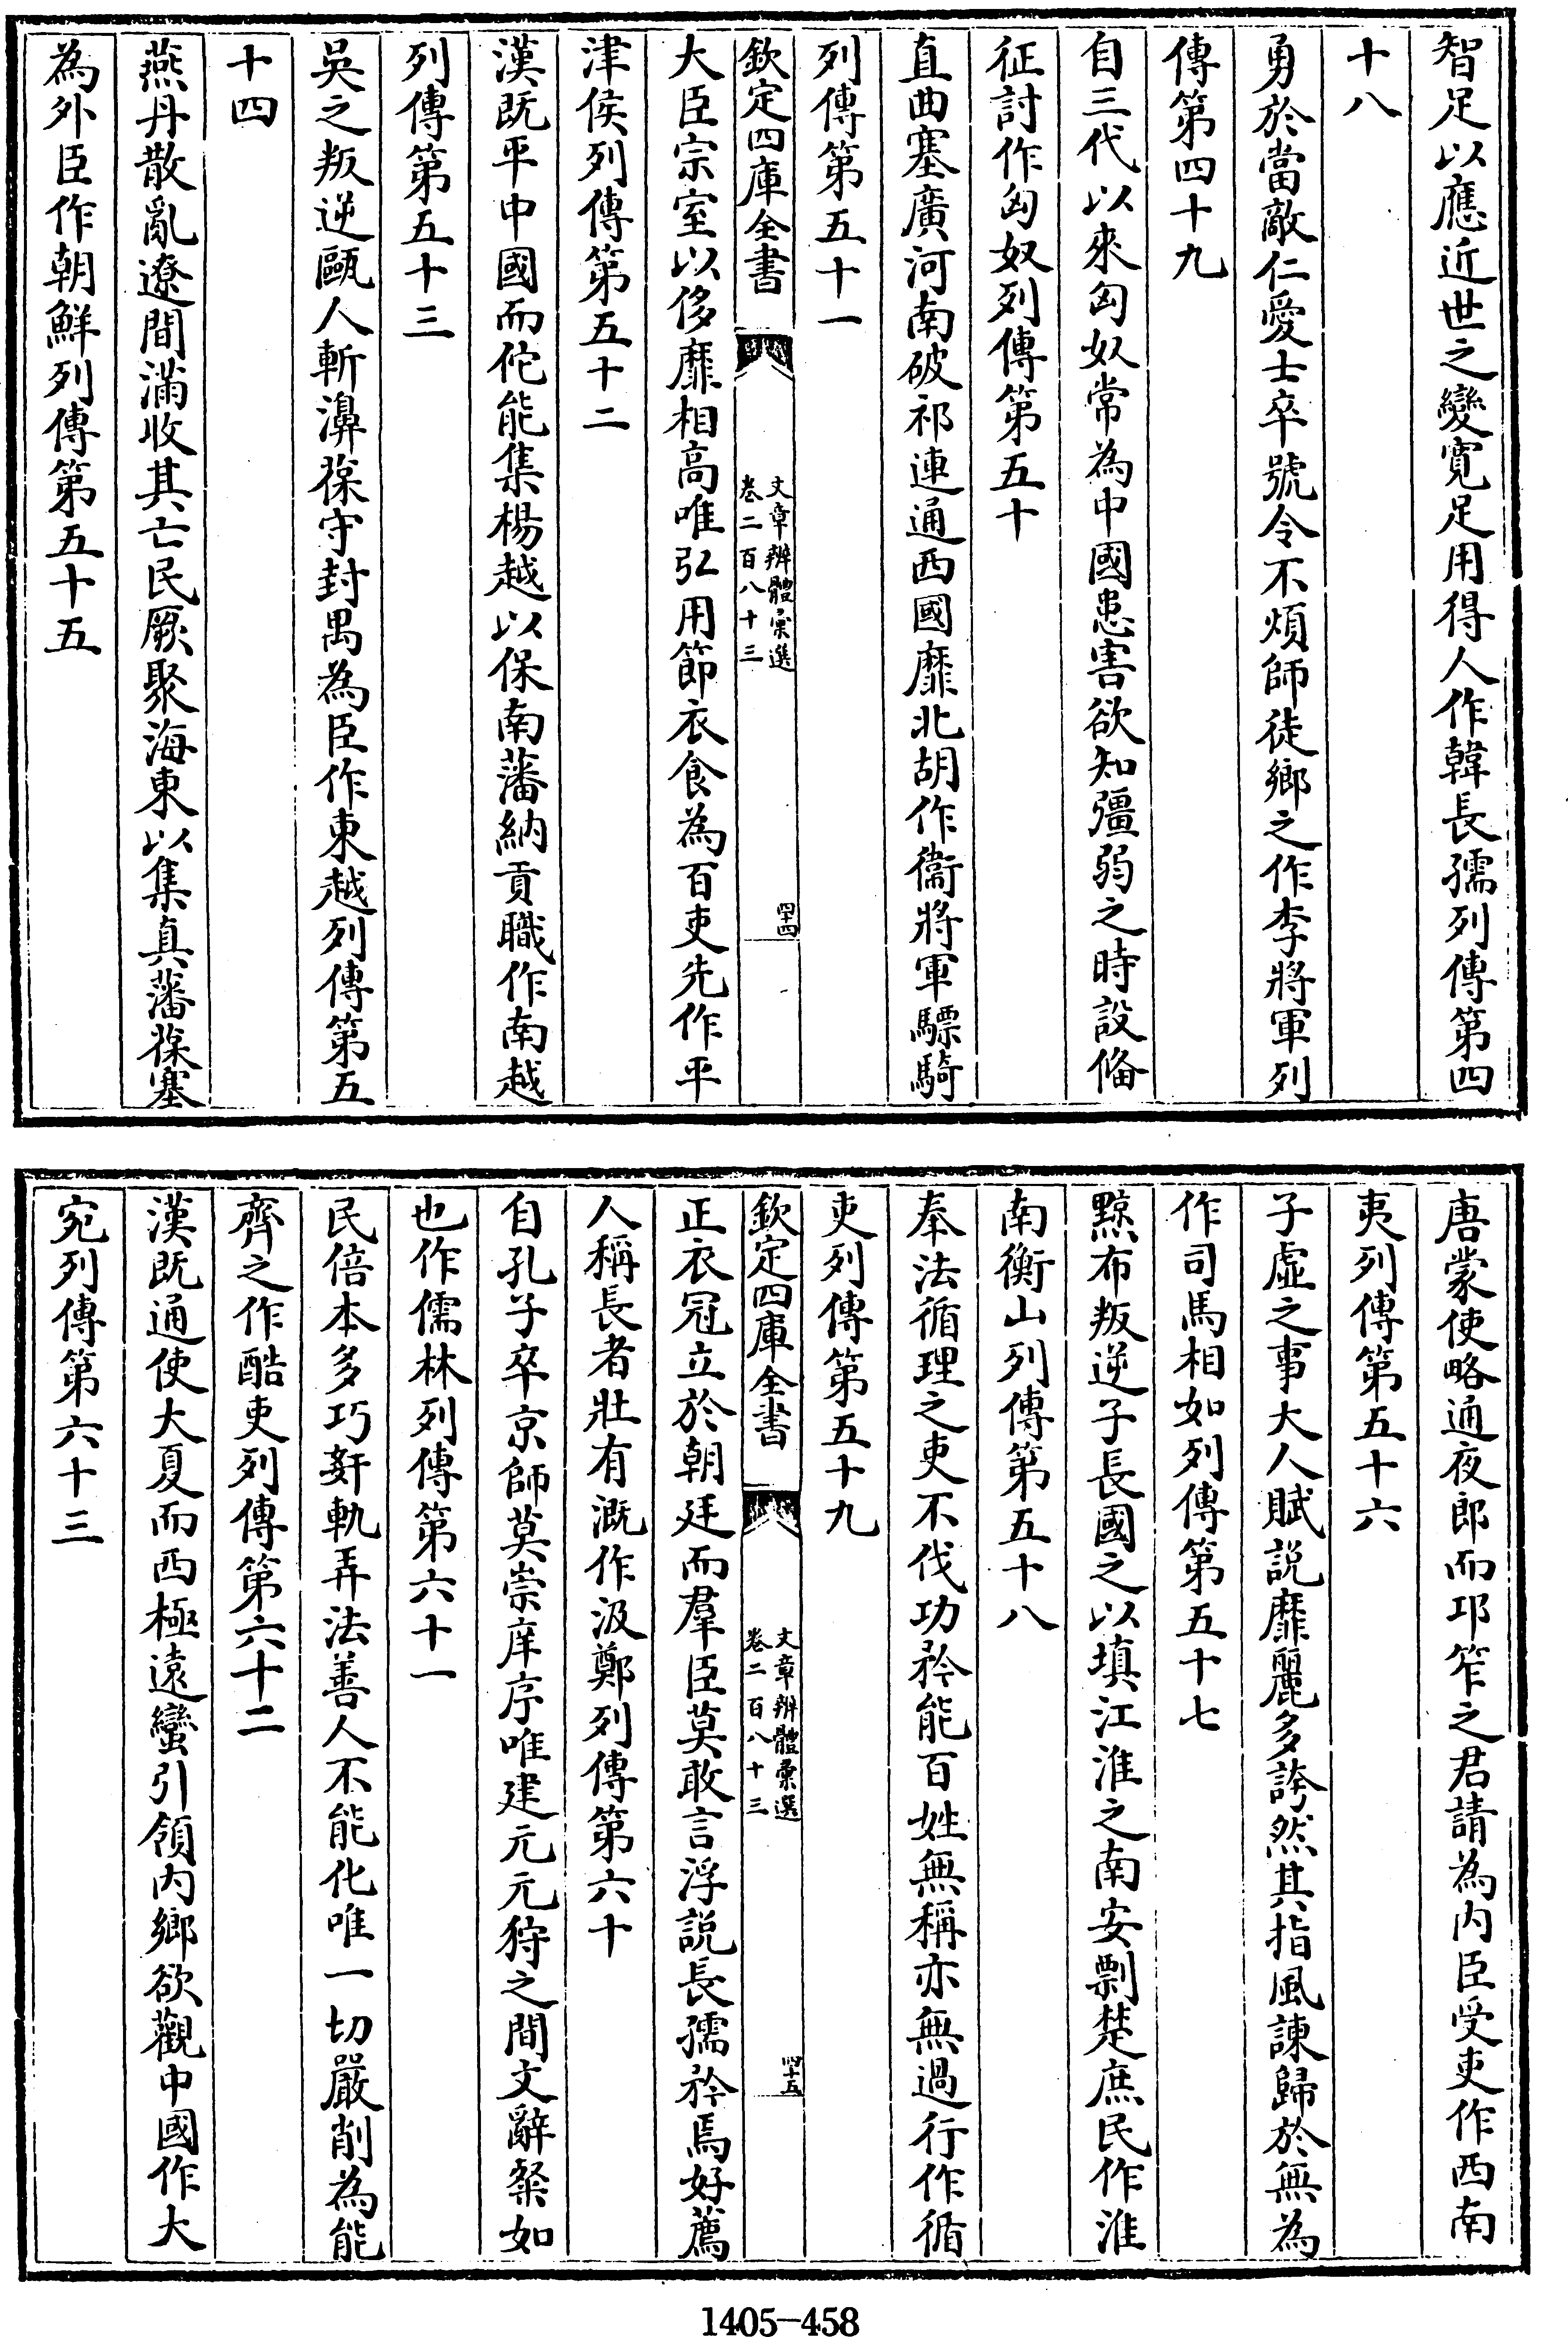 智足以應近世之變寛足用得人作韓長孺列傳第四
十八
勇於當敵仁愛士卒號令不煩師徒鄉之作李將軍列
傳第四十九
自三代以來匈奴常為中國患害欲知彊弱之時設俻
征討作匈奴列傳第五十
直曲塞廣河南破祁連通西國靡北胡作衞將軍驃騎
列傳第五十一
欽定四庫全書
文章辨體彚選
卷二百八十三
四十四
大臣宗室以侈靡相高唯弘用節衣食為百吏先作平
津侯列傳第五十二
漢既平中國而佗能集楊越以保南藩納貢職作南越
列傳第五十三
吳之叛逆甌人斬濞葆守封禺為臣作東越列傳第五
十四
燕丹散亂遼間滿收其亡民厥聚海東以集真藩葆塞
為外臣作朝鮮列傳第五十五
唐蒙使略通夜郎而邛笮之君請為内臣受吏作西南
夷列傳第五十六
子虛之事大人賦説靡麗多誇然其指風諫歸於無為
作司馬相如列傳第五十七
黥布叛逆子長國之以填江淮之南安剽楚庶民作淮
南衡山列傳第五十八
奉法循理之吏不伐功矜能百姓無稱亦無過行作循
吏列傳第五十九
欽定四庫全書
文章辨體彚選
卷二百八十三
四十五
正衣冠立於朝廷而羣臣莫敢言浮説長孺矜焉好薦
人稱長者壯有溉作汲鄭列傳第六十
自孔子卒京師莫崇庠序唯建元元狩之間文辭粲如
也作儒林列傳第六十一
民倍本多巧姧軌弄法善人不能化唯一切嚴削為能
齊之作酷吏列傳第六十二
漢既通使大夏而西極遠蠻引領内鄉欲觀中國作大
宛列傳第六十三
1405-458